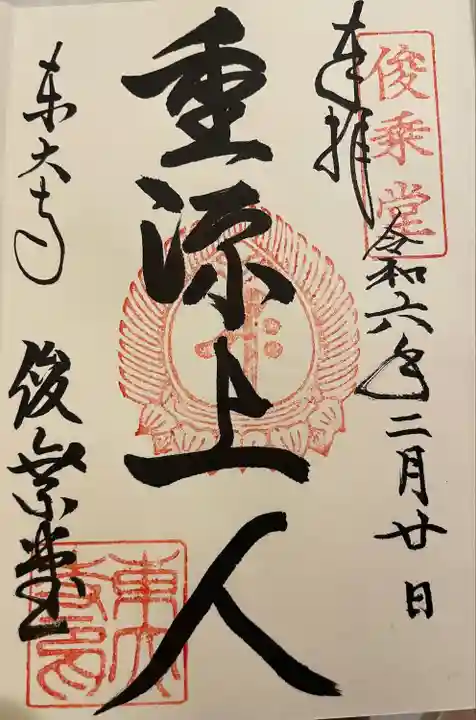 俊乗堂
奉拝
令和六年二月廿日
重源上人
東大寺
俊乗堂
東大
寺印